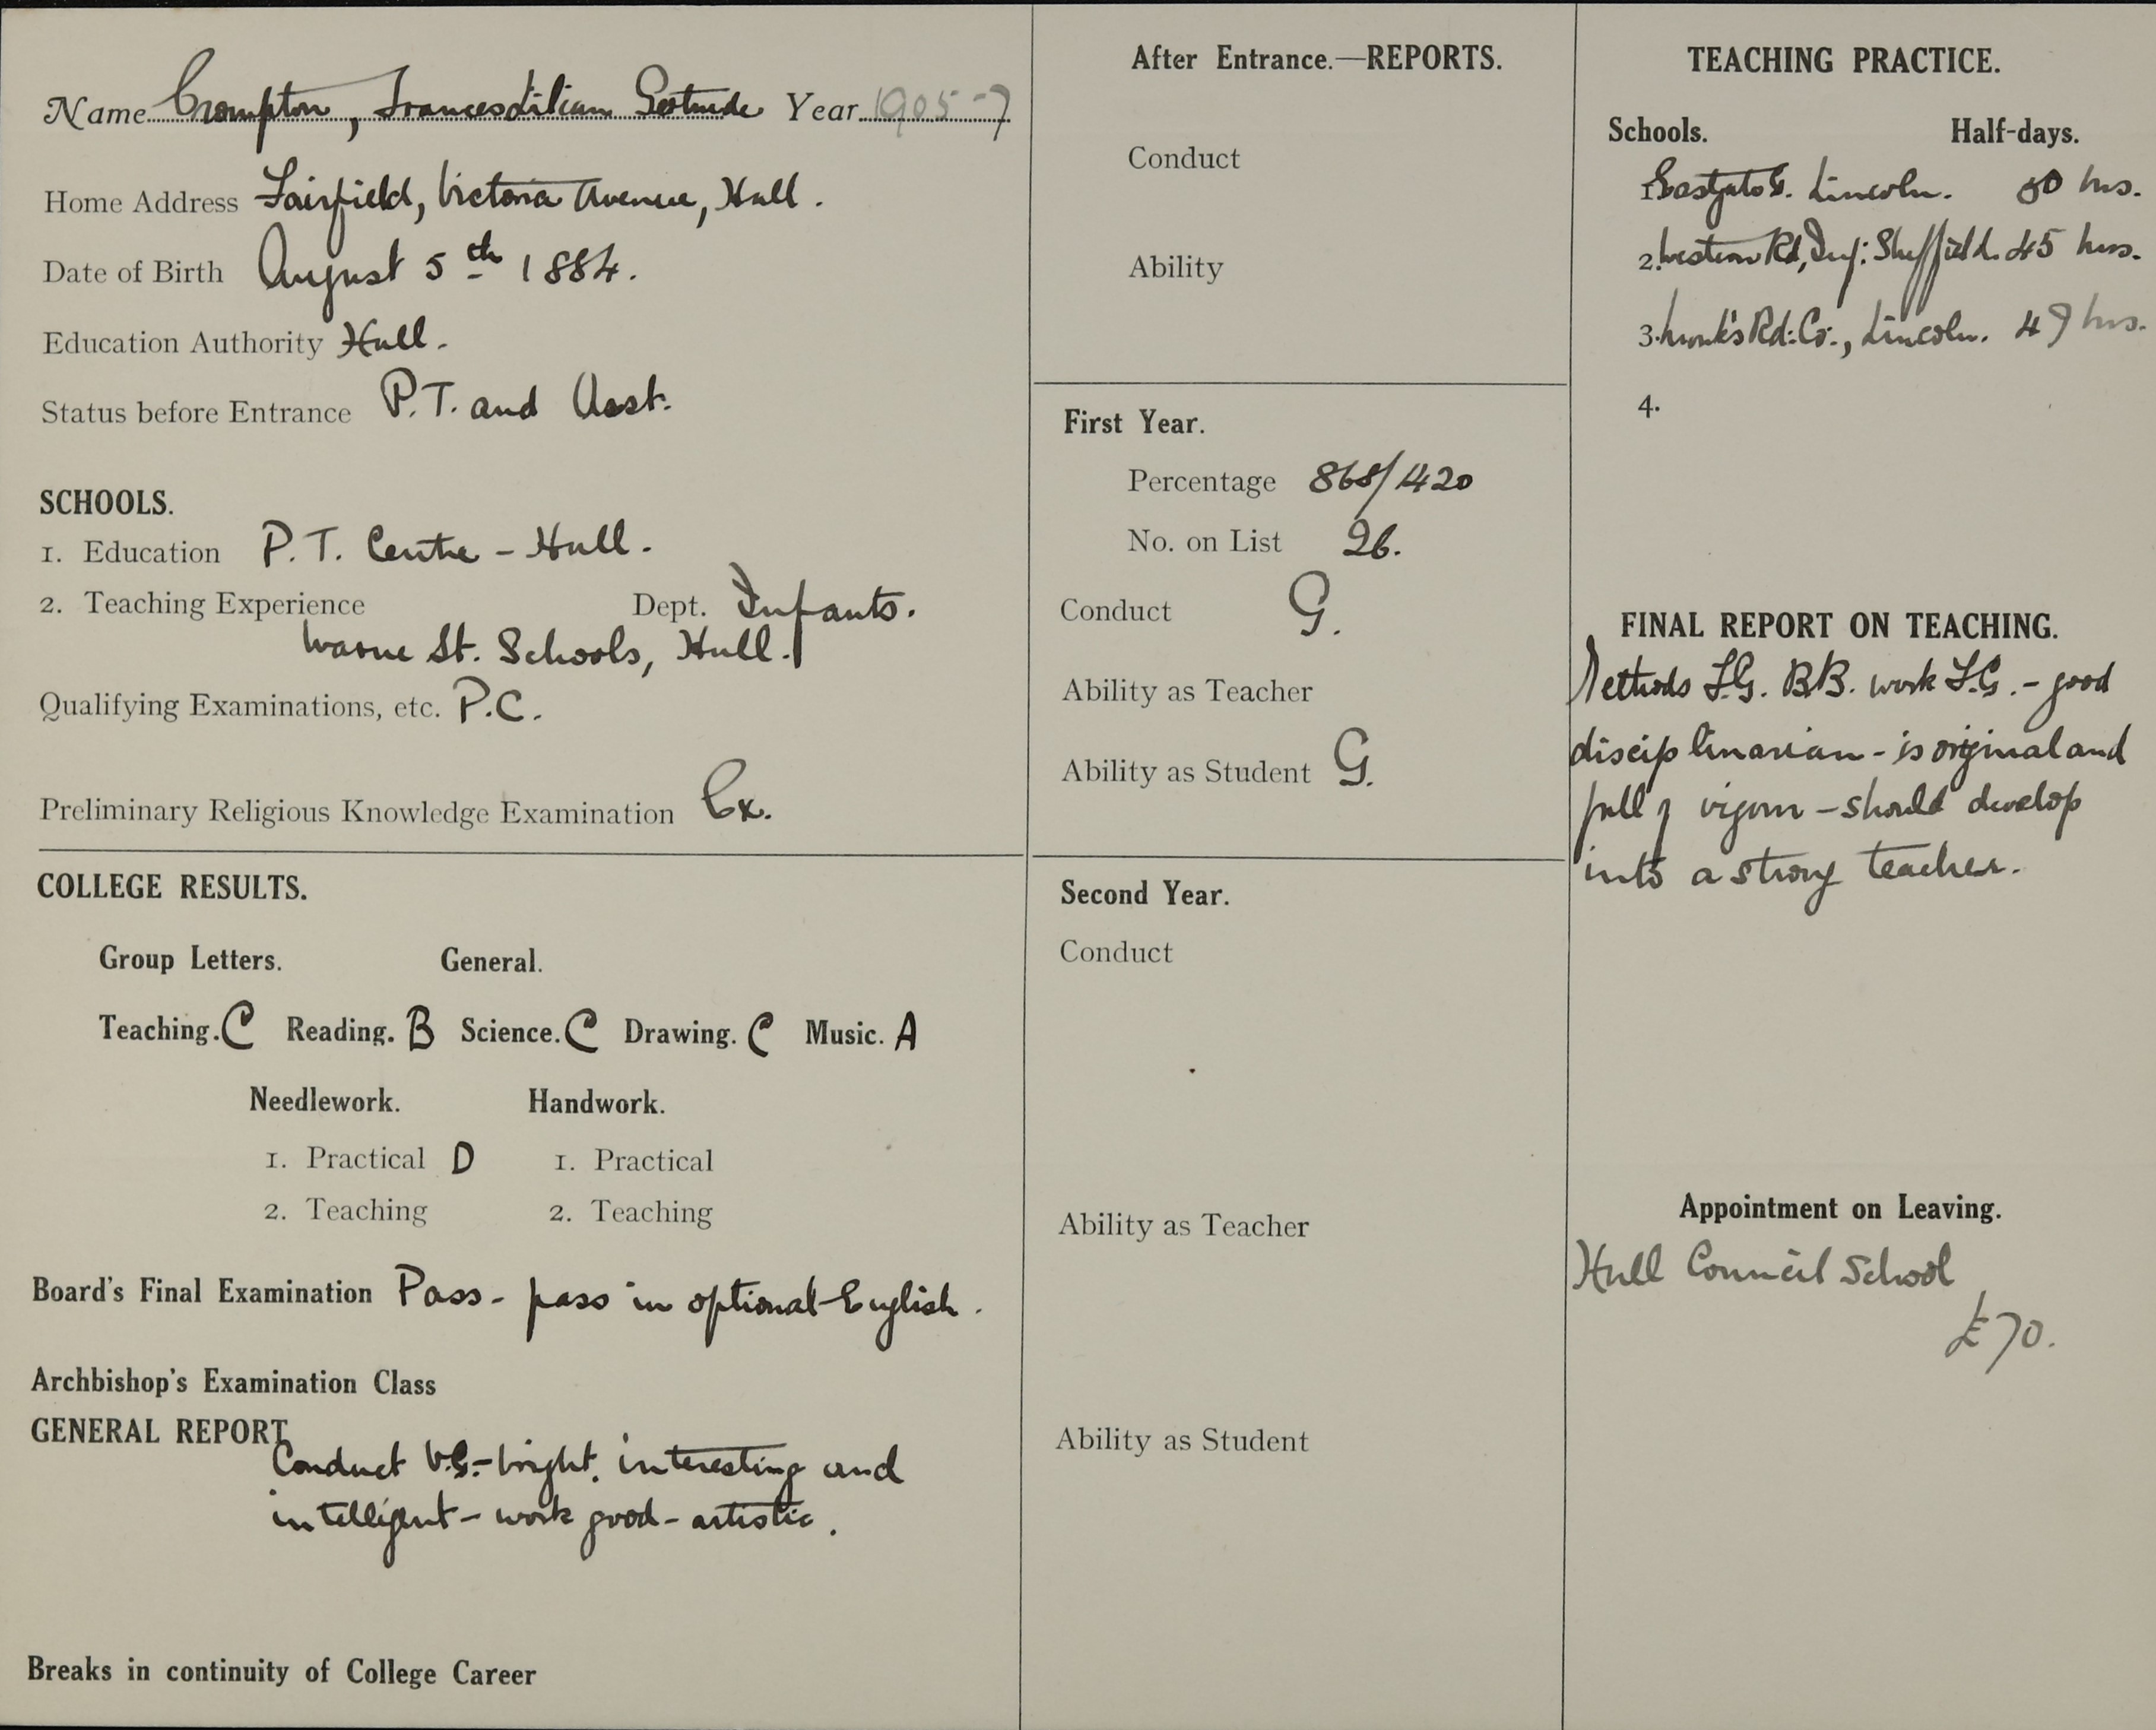 Name Crompton, Frances Lilian Gertrude Year 1905-7
Home Address Fairfield, Victoria Avenue, Hull.
Date of Birth August 5th 1884.
Education Authority Hull.
Status before Entrance P.T. and Asst.
SCHOOLS.
1. Education P.T. Centre - Hull.
2. Teaching Experience Dept. Infants.
St. Schools, Hull.
Qualifying Examinations, etc. P.C.
Preliminary Religious Knowledge Examination Ex.
COLLEGE RESULTS.
Group Letters. General.
Teaching. C Reading. B Science. C Drawing. C Music. A
Needlework. Handwork.
1. Practical D 1. Practical
2. Teaching 2. Teaching
Board's Final Examination Pass - pass in optional English.
Archbishop's Examination Class
GENERAL REPORT
Conduct V.G. - bright, interesting and
intelligent - work good - artistic.
Breaks in continuity of College Career
After Entrance.—REPORTS.
Conduct
Ability
First Year.
Percentage 868/1420
No. on List 26.
Conduct G.
Ability as Teacher
Ability as Student G.
Second Year.
Conduct
Ability as Teacher
Ability as Student
TEACHING PRACTICE.
Schools. Half-days.
1. Eastgate G. Lincoln. 50 hrs.
2. Western Rd, Inf: Sheffield. 45 hrs.
3. Monk's Rd: Co:, Lincoln. 47 hrs.
4.
FINAL REPORT ON TEACHING.
Methods F.G. BB. work F.G. - good
disciplinarian - is original and
full of vigour - should develop
into a strong teacher.
Appointment on Leaving.
Hull Council School
£70.